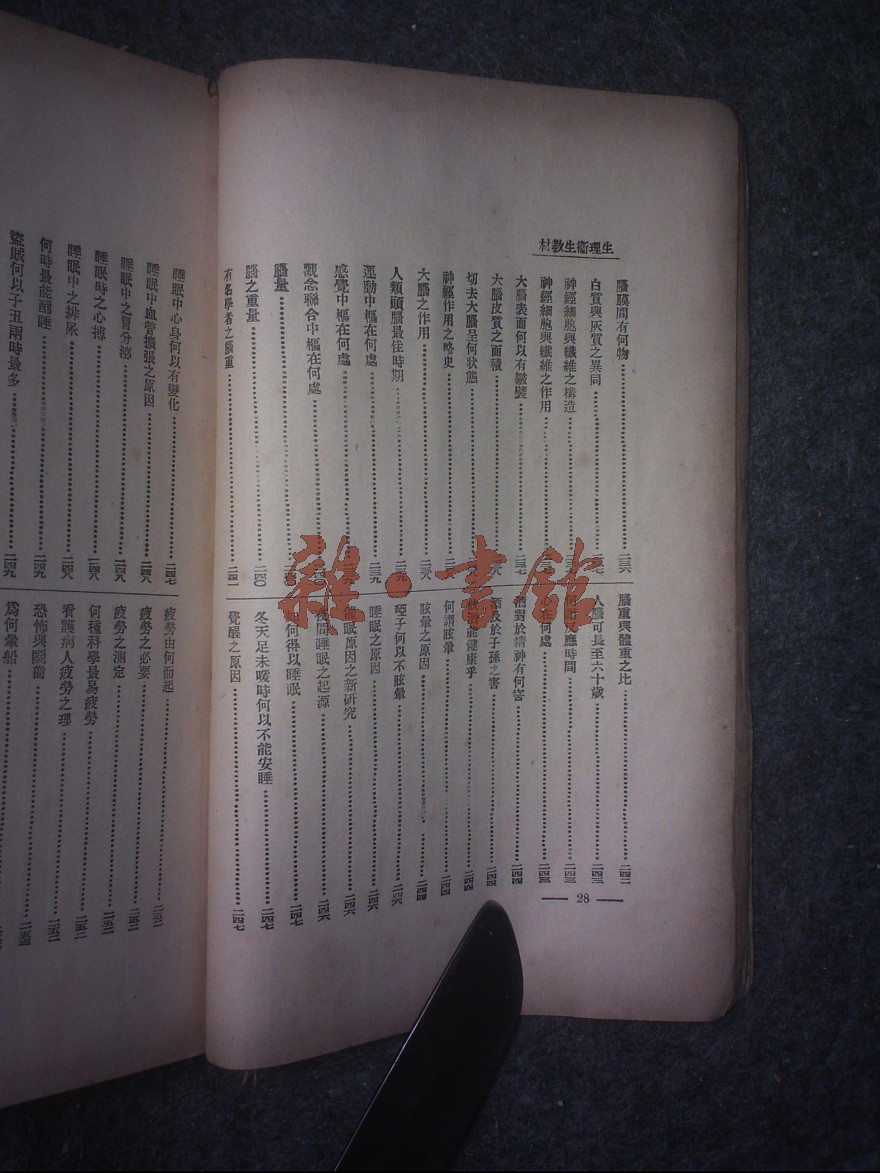 生理衞生教材
腦膜間有何物⋯⋯二三六
白質與灰質之異同⋯⋯二三七
神經細胞與纖維之構造
神經細胞與纖維之作用
大腦表面何以有皺襞⋯⋯二三七
大腦皮質之面積⋯⋯二三八
切去大腦呈何狀態
神經作用之略史
大腦之作用⋯⋯二三八
人類頭腦最佳時期⋯⋯二三九
運動中樞在何處⋯⋯二三九
感覺中樞在何處
觀念聯合中樞在何處
腦量
腦之重量⋯⋯二四〇
有名學者之腦重⋯⋯二四一
腦重與體重之比⋯⋯二四二
人腦可長至六十歲⋯⋯二四三
反應時間⋯⋯二四三
何處⋯⋯二四三
酒對於精神有何害⋯⋯二四四
酒及於子孫之害⋯⋯二四四
能健康乎⋯⋯二四四
何謂眩暈⋯⋯二四四
眩暈之原因⋯⋯二四四
啞子何以不眩暈⋯⋯二四六
睡眠之原因⋯⋯二四六
睡眠原因之新研究⋯⋯二四六
夜間睡眠之起源⋯⋯二四六
何得以睡眠⋯⋯二四七
冬天足未暖時何以不能安睡⋯⋯二四七
覺醒之原因⋯⋯二四七
— 28 —
睡眠中心身何以有變化⋯⋯二四七
睡眠中血管擴張之原因⋯⋯二四八
睡眠中之胃分泌⋯⋯二四八
睡眠時之心搏⋯⋯二四八
睡眠中之排尿⋯⋯二四八
何時最能酣睡⋯⋯二四九
盜賊何以子丑兩時最多⋯⋯二四九
疲勞由何而起
疲勞之必要
疲勞之測定
何種科學最易疲勞
看護病人疲勞之理
恐怖與鬭齒
爲何暈船
雜·書館